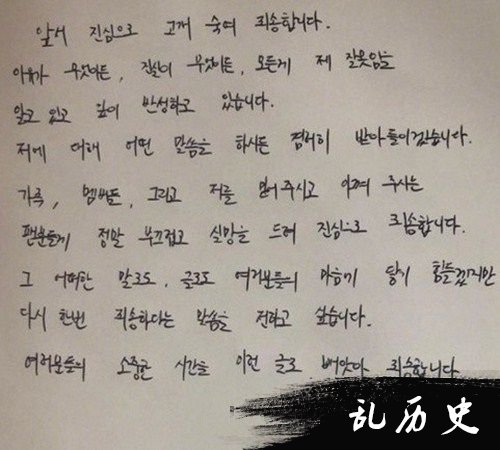 앞서 진심으로 고개 숙여 죄송합니다.
이유가 무엇이든, 진실이 무엇이든, 모든게 제 잘못임을
알고 있고 깊이 반성하고 있습니다.
저에 대해 어떤 말씀을 하시든 겸허히 받아들이겠습니다.
가족, 멤버들, 그리고 저를 믿어주시고 아껴 주시는
팬분들께 정말 부끄럽고 실망을 드려 진심으로 죄송합니다.
그 어떠한 말로도, 글로도 여러분들의 마음에 닿기 힘들겠지만
다시 한번 죄송하다는 말씀을 전하고 싶습니다.
여러분들의 소중한 시간을 이런 글로 빼앗아 죄송합니다
乱历史